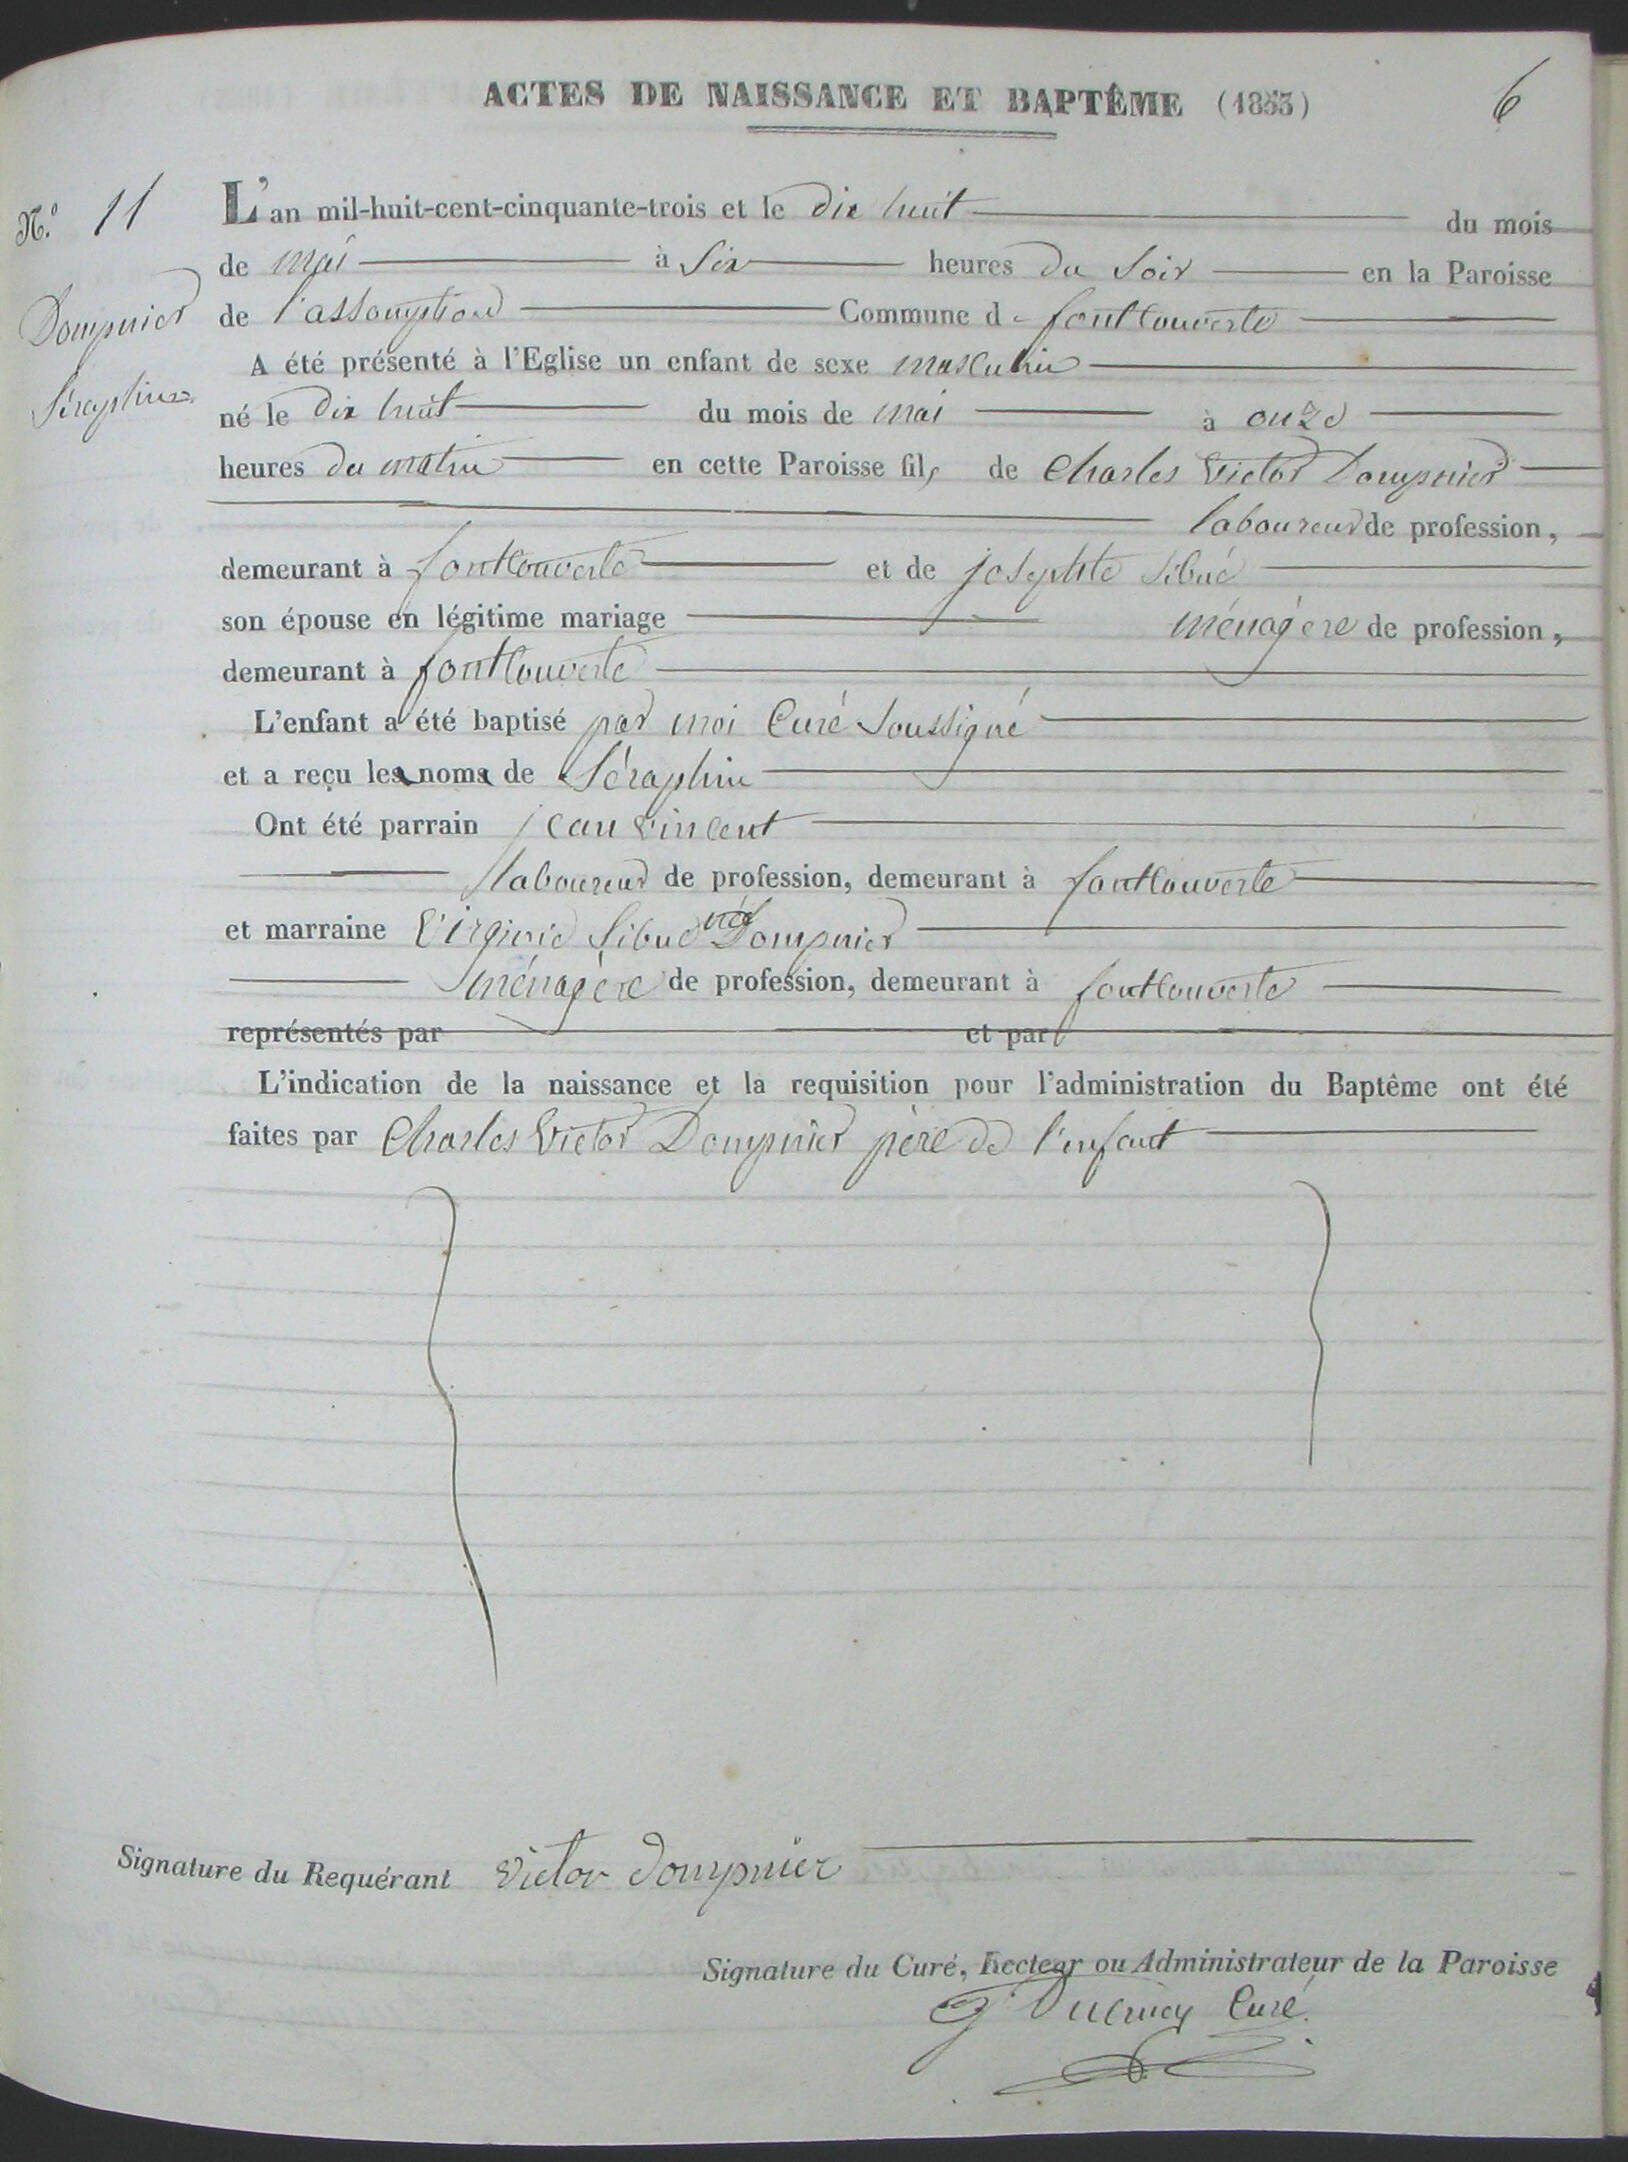 ACTES DE NAISSANCE ET BAPTÊME (1853)
6
N.º 11
Dompnier
Séraphin
L'an mil-huit-cent-cinquante-trois et le dix huit du mois
de mai à six heures du soir en la Paroisse
de l'assomption Commune de fontcouverte
A été présenté à l'Eglise un enfant de sexe masculin
né le dix huit du mois de mai à onze
heures du matin en cette Paroisse fils de Charles Victor Dompnier
laboureur de profession,
demeurant à fontcouverte et de josephte Sibué
son épouse en légitime mariage ménagère de profession,
demeurant à fontcouverte
L'enfant a été baptisé par moi Curé soussigné
et a reçu les noms de Séraphin
Ont été parrain jean vincent
laboureur de profession, demeurant à fontcouverte
et marraine Virginie Sibué née Dompnier
ménagère de profession, demeurant à fontcouverte
représentés par et par
L'indication de la naissance et la requisition pour l'administration du Baptême ont été
faites par Charles Victor Dompnier père de l'enfant
Signature du Requérant victor dompnier
Signature du Curé, Recteur ou Administrateur de la Paroisse
Curé.